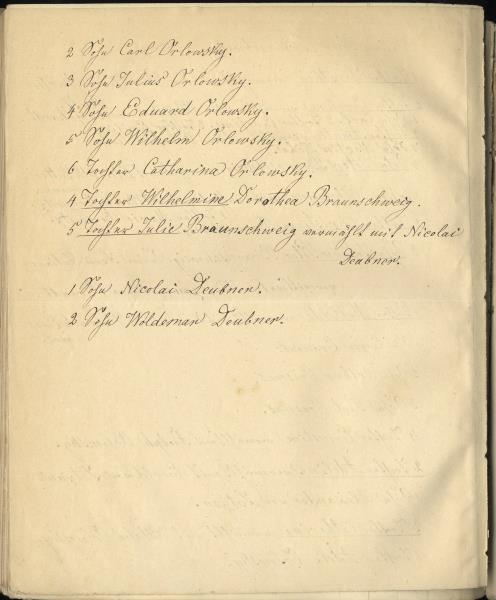 2 Sohn Carl Orlowsky.
3 Sohn Julius Orlowsky.
4 Sohn Eduard Orlowsky.
5 Sohn Wilhelm Orlowsky.
6 Tochter Catharina Orlowsky.
4 Tochter Wilhelmine Dorothea Braunschweig.
5 Tochter Julie Braunschweig vermählt mit Nicolai
Deubner.
1 Sohn Nicolai Deubner.
2 Sohn Woldemar Deubner.